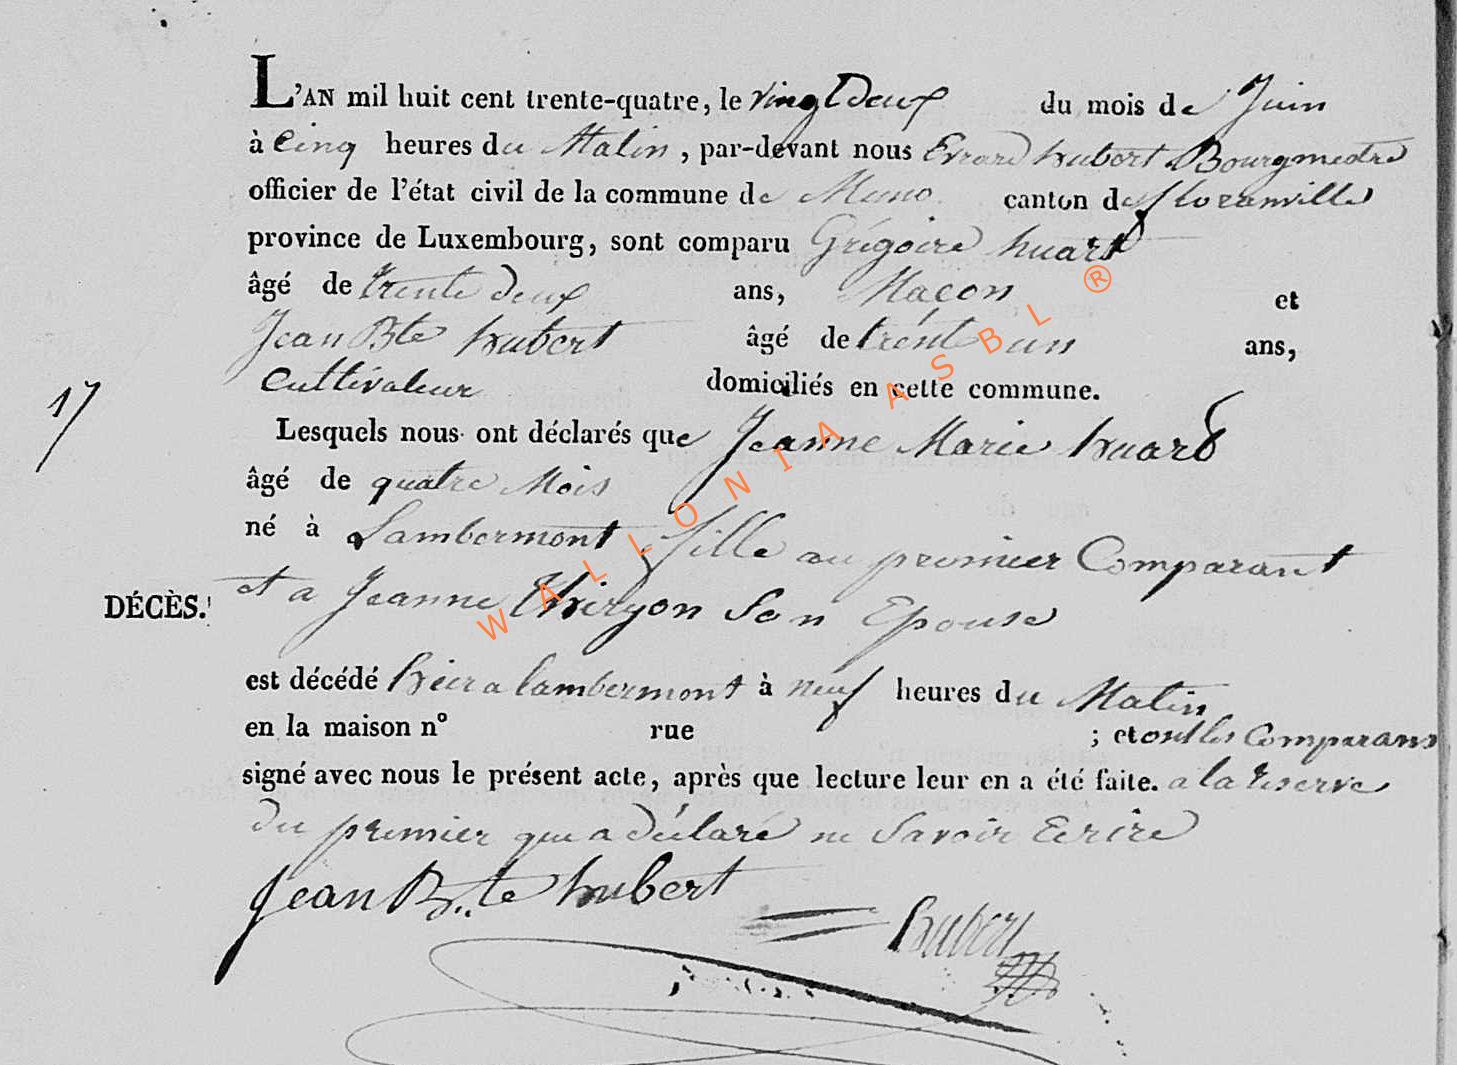 L'AN mil huit cent trente-quatre, le vingt deux du mois de Juin
à Cinq heures du Matin, par-devant nous Evrard hubert Bourgmestre
officier de l'état civil de la commune de Muno canton de florenville
province de Luxembourg, sont comparu Grégoire huard
âgé de trente deux ans, Maçon et
Jean Bte hubert âgé de trente un ans,
Cultivateur domiciliés en cette commune.
17
Lesquels nous ont déclarés que Jeanne Marie huard
âgé de quatre Mois
né à Lambermont, fille au premier Comparant
et a Jeanne thiryon Son Epouse
DÉCÈS.
est décédé hier a lambermont à neuf heures du Matin
en la maison n° rue ; et ont les Comparans
signé avec nous le présent acte, après que lecture leur en a été faite. a la reserve
du premier qui a déclaré ne Savoir Ecrire
Jean Bte hubert
hubert
WALLONIA ASBL ®